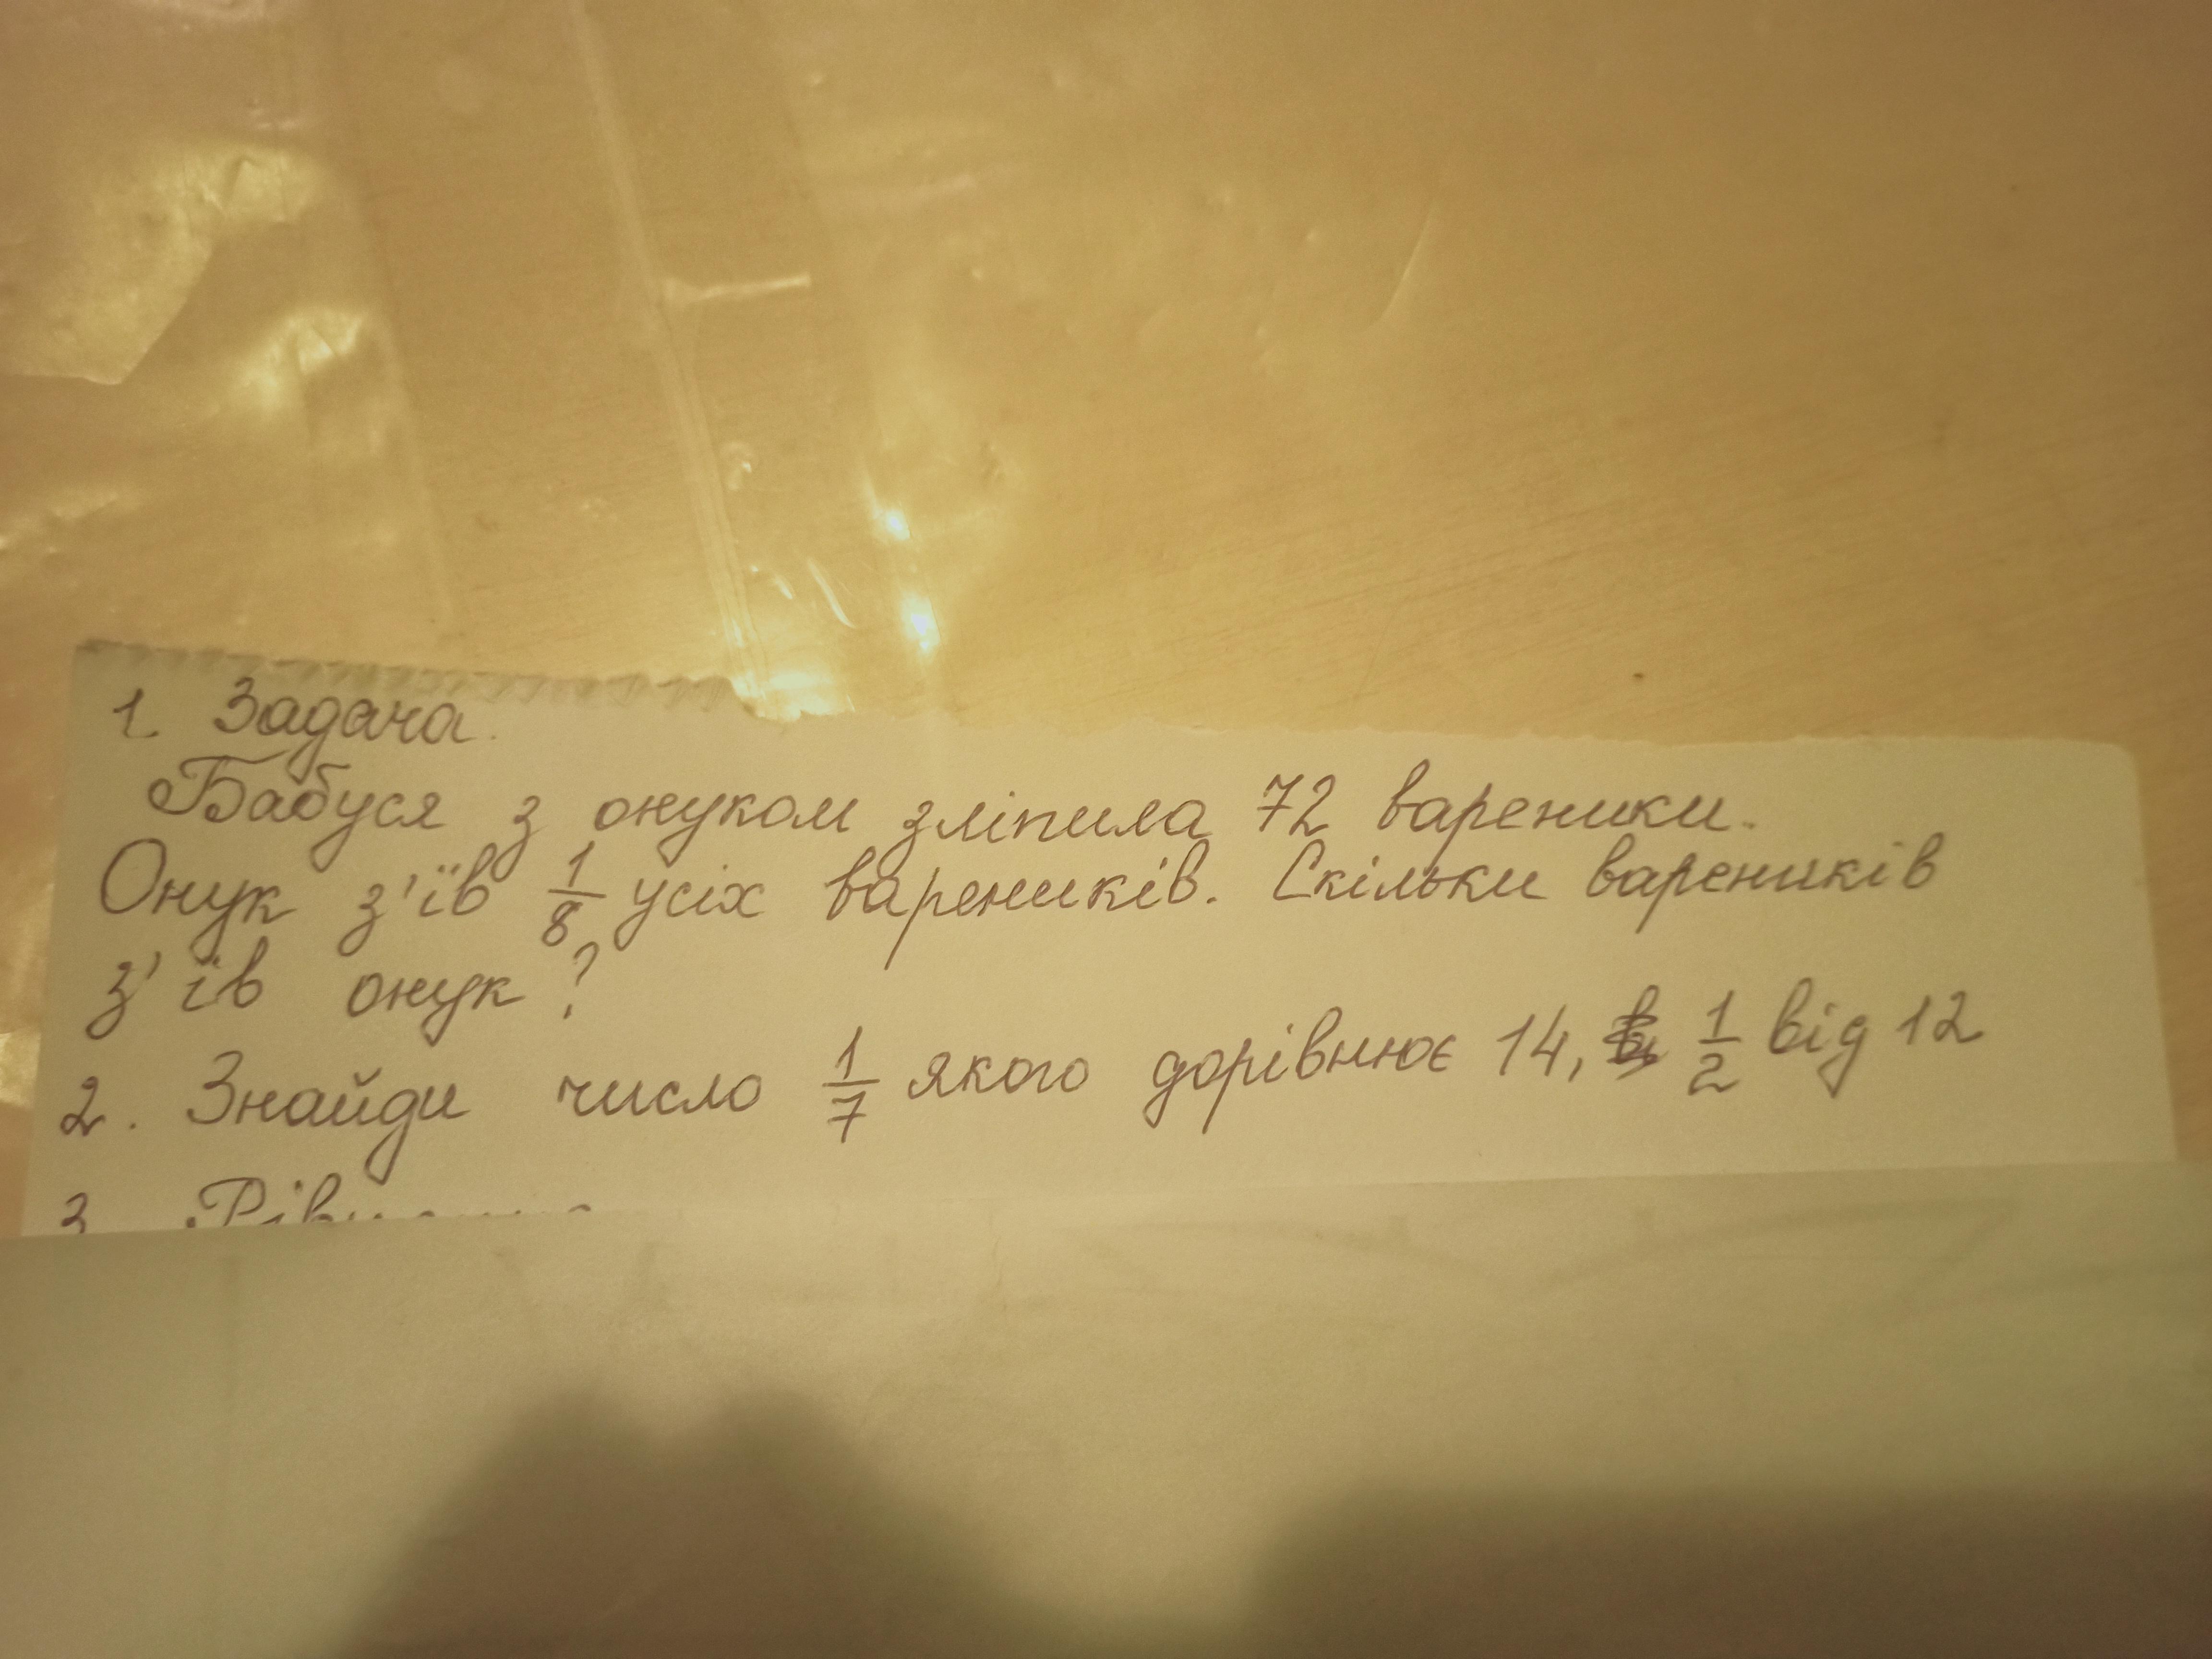 1. Задача.
Бабуся з онуком зліпила 72 вареники.
Онук з'їв 1/8 усіх вареників. Скільки вареників
з'їв онук?
2. Знайди число 1/7 якого дорівнює 14, 1/2 від 12
3